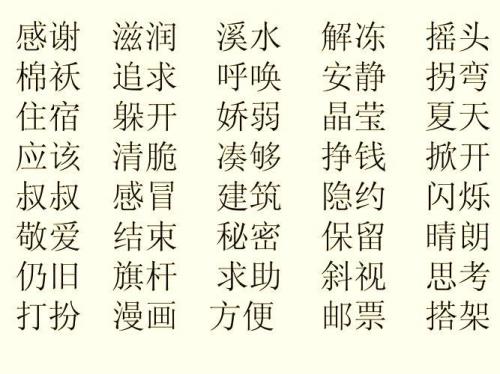 感谢 滋润 溪水 解冻 摇头
棉袄 追求 呼唤 安静 拐弯
住宿 躲开 娇弱 晶莹 夏天
应该 清脆 凑够 挣钱 掀开
叔叔 感冒 建筑 隐约 闪烁
敬爱 结束 秘密 保留 晴朗
仍旧 旗杆 求助 斜视 思考
打扮 漫画 方便 邮票 搭架